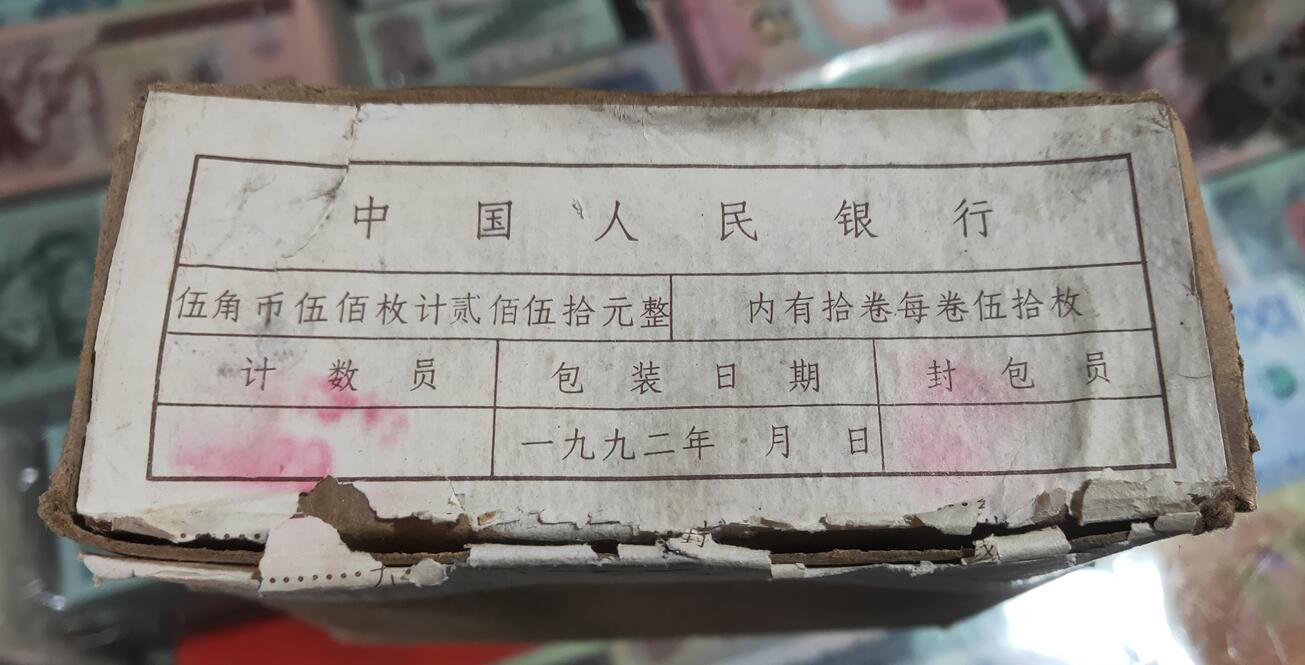 中国人民银行
伍角币伍佰枚计贰佰伍拾元整 内有拾卷每卷伍拾枚
计数员 包装日期 封包员
一九九二年 月 日